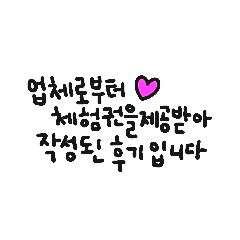 업체로부터
체험권을제공받아
작성된 후기입니다